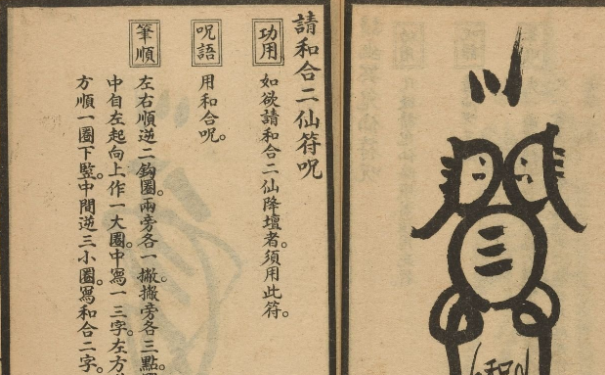 請和合二仙符呪
功用
如欲請和合二仙降壇者。須用此符。
呪語
用和合呪。
筆順
左右順逆二鈎圈。兩旁各一撇。撇旁各三點。
中自左起向上作一大圈。中寫一三字。左方
方順一圈下豎。中間逆三小圈。寫和合二字。
三